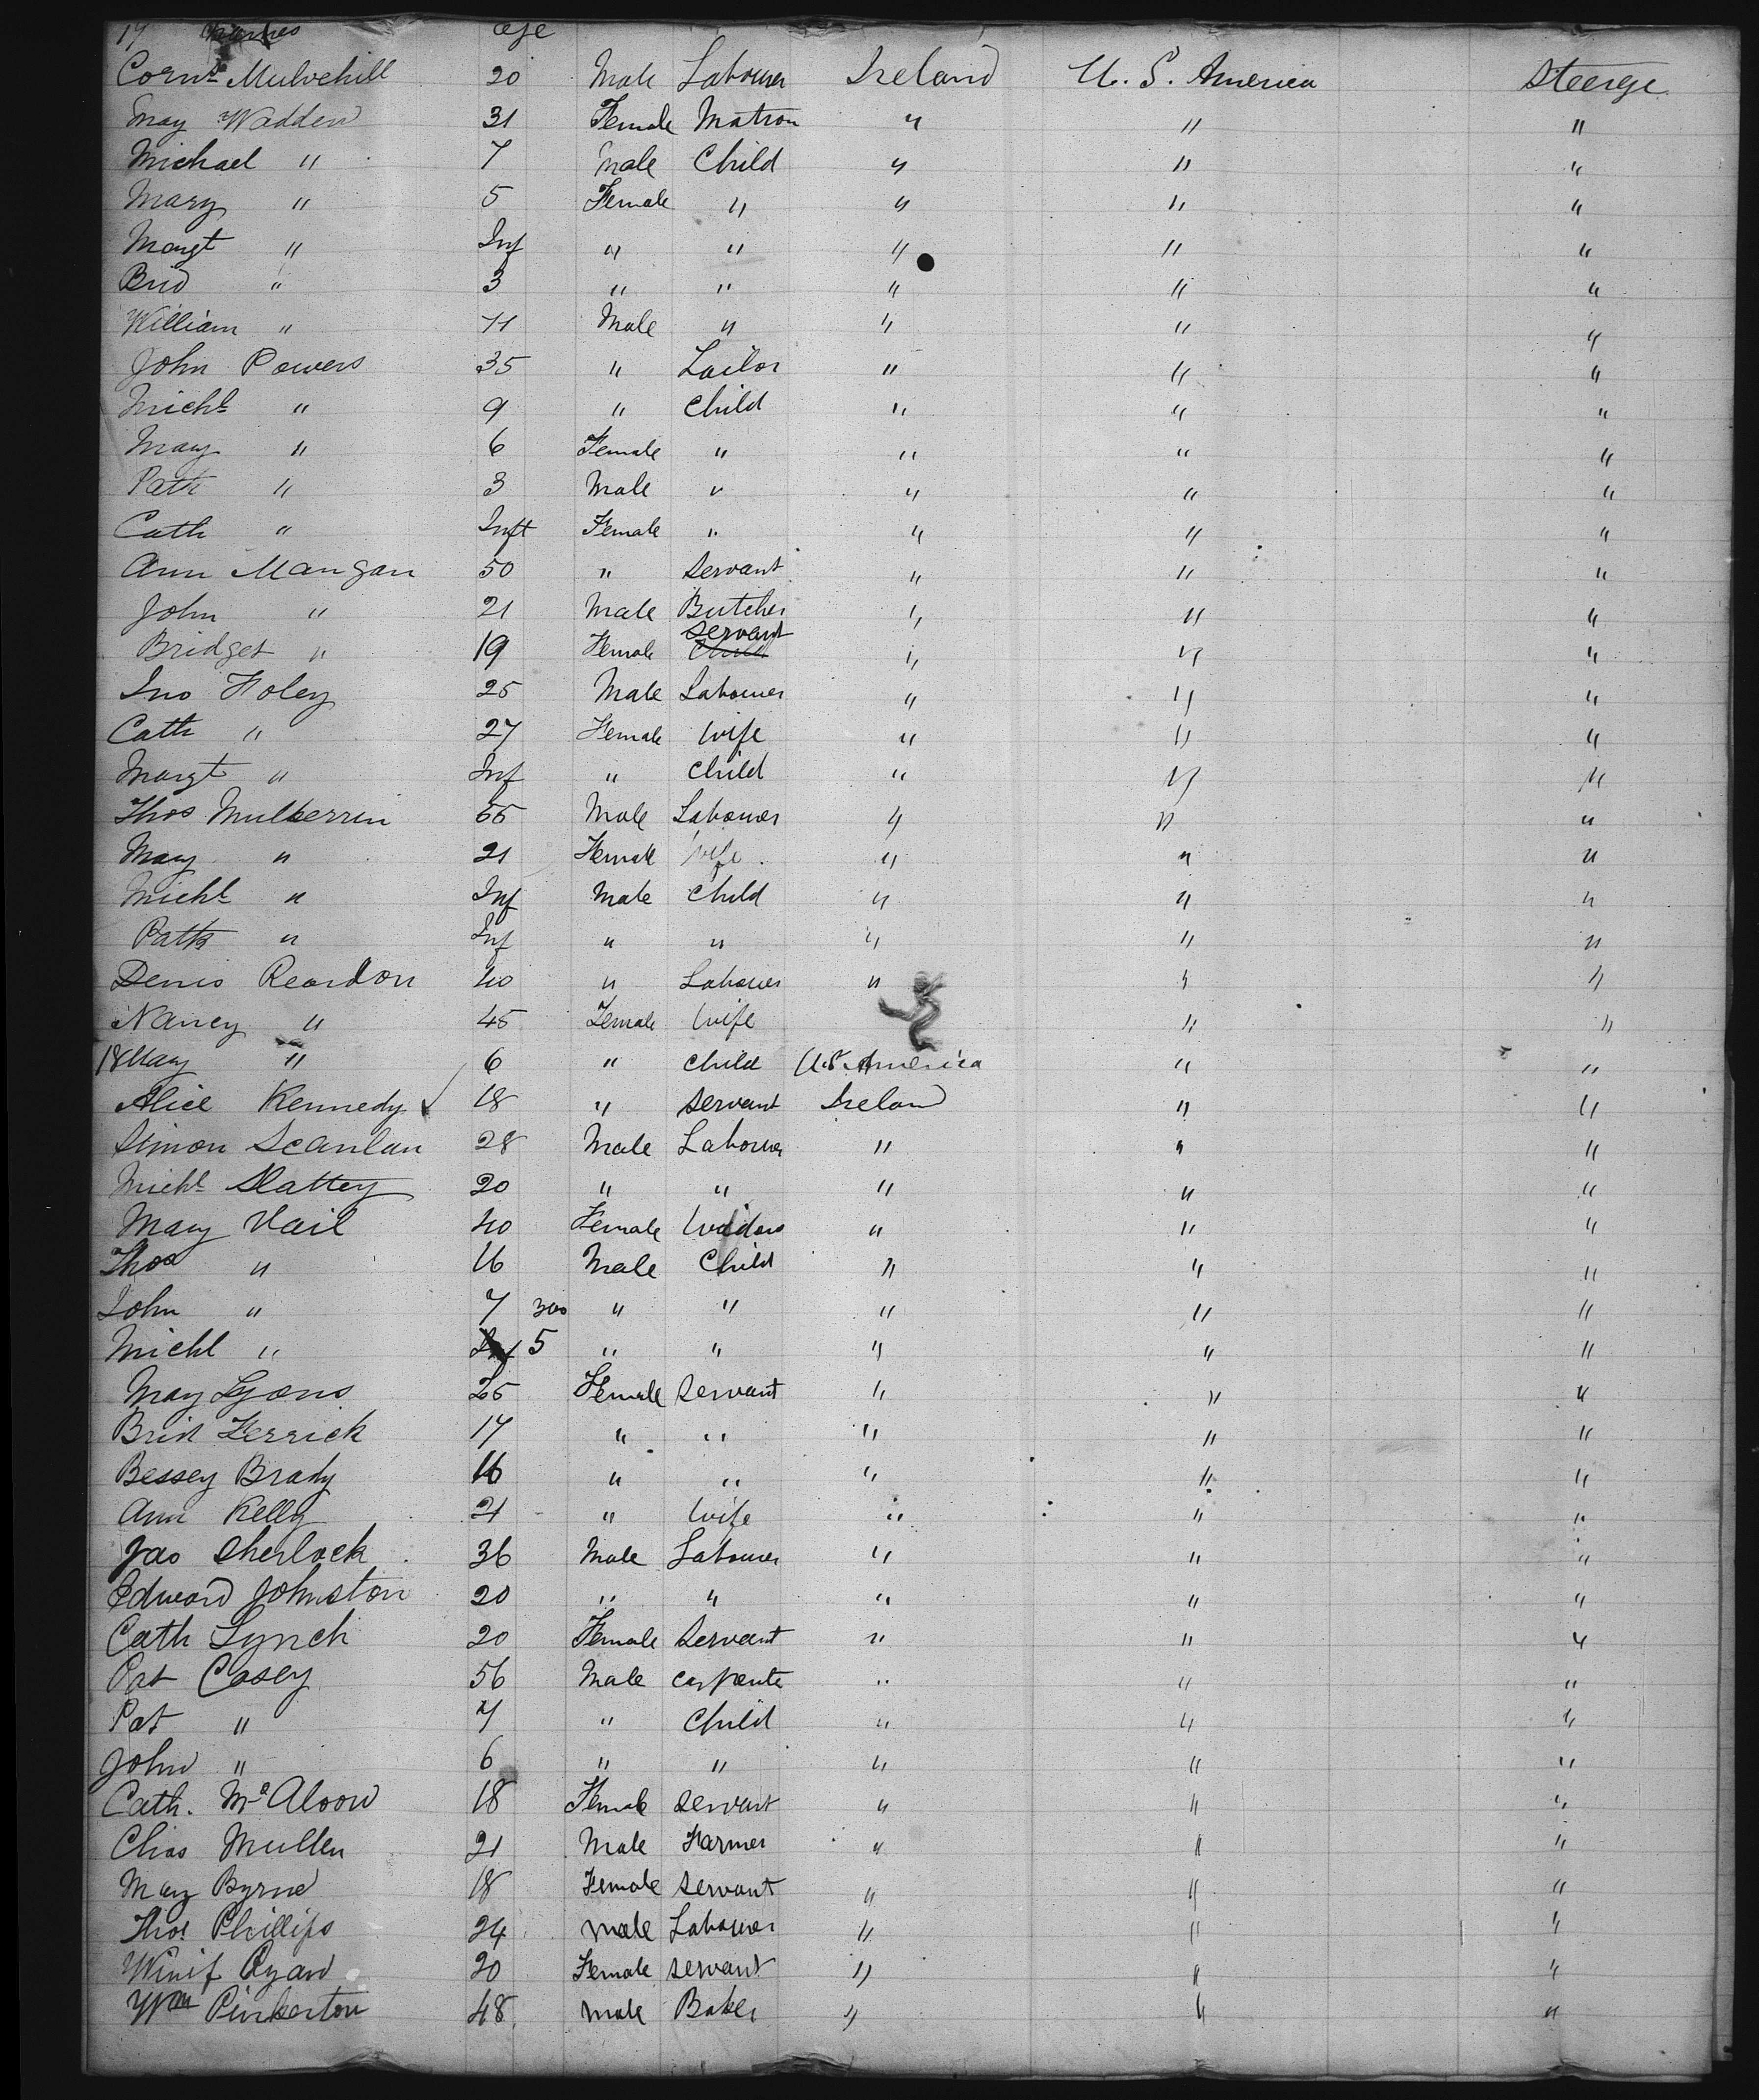 19 Names Age
Corns Mulvehill 20 Male Labourer Ireland U. S. America Steerge
May Wadden 31 Female Matron " " "
Michael " 7 Male Child " " "
Mary " 5 Female " " " "
Margt " Inf " " " " "
Brid " 3 " " " " "
William " 11 Male " " " "
John Powers 35 " Tailor " " "
Michl " 9 " Child " " "
Mary " 6 Female " " " "
Patk " 3 Male " " " "
Cath " Inft Female " " " "
Ann Mangan 50 " Servant " " "
John " 21 Male Butcher " " "
Bridget " 19 Female Servant " " "
Jno Foley 25 Male Labourer " " "
Cath " 27 Female Wife " " "
Margt " Inf " Child " " "
Thos Mulkerrin 55 Male Labourer " " "
Mary " 21 Female Wife " " "
Michl " Inf Male Child " " "
Patk " Inf " " " " "
Denis Reardon 40 " Labourer " " "
Nancy " 45 Female Wife " "
18 Mary " 6 " Child U.S. America " "
Alice Kennedy 18 " Servant Ireland " "
Simon Scanlan 28 Male Labourer " " "
Michl Slattey 20 " " " " "
Mary Vail 40 Female Widow " " "
Thos " 16 Male Child " " "
John " 7 " " " " "
Michl " 5 " " " " "
May Lyons 25 Female Servant " " "
Brid Ferrick 17 " " " " "
Bessey Brady 16 " " " " "
Ann Kelly 21 " Wife " " "
Jas Sherlock 36 Male Labourer " " "
Edward Johnston 20 " " " " "
Cath Lynch 20 Female Servant " " "
Pat Casey 56 Male Carpente " " "
Pat " 7 " Child " " "
John " 6 " " " " "
Cath. McAloon 18 Female Servant " " "
Chas Mullen 21 Male Farmer " " "
May Byrne 18 Female Servant " " "
Thos Phillips 24 Male Labourer " " "
Winif Ryan 20 Female Servant " " "
Wm Pinkerton 48 Male Baker " " "